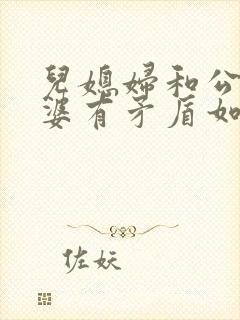 兒媳婦和公
婆有矛盾如
佐妖